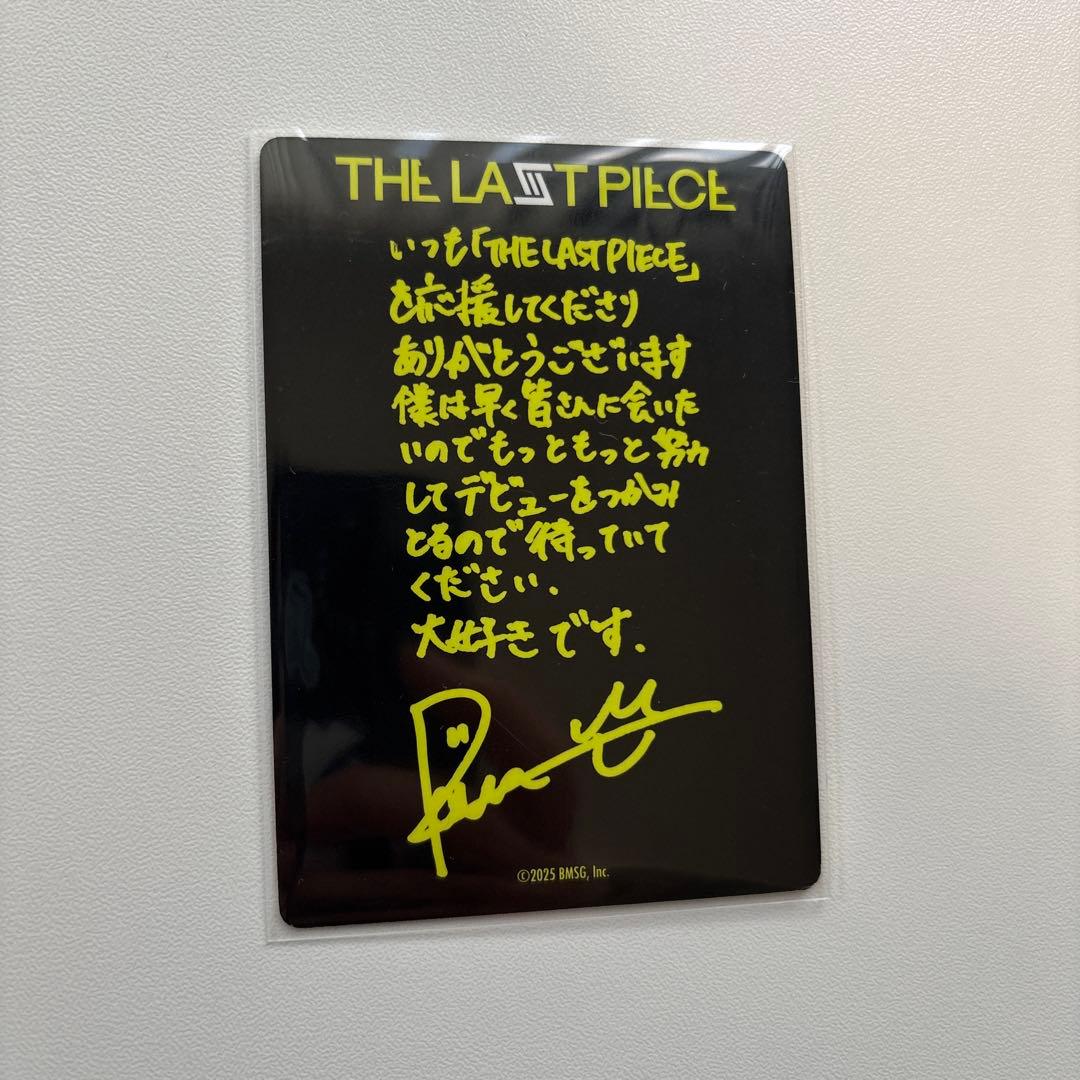 THE LAST PIECE
いつも「THE LAST PIECE」
を応援してくださり
ありがとうございます
僕は早く皆さんに会いた
いのでもっともっと努力
してデビューをつかみ
とるので待っていて
ください.
大好きです.
©2025 BMSG, Inc.